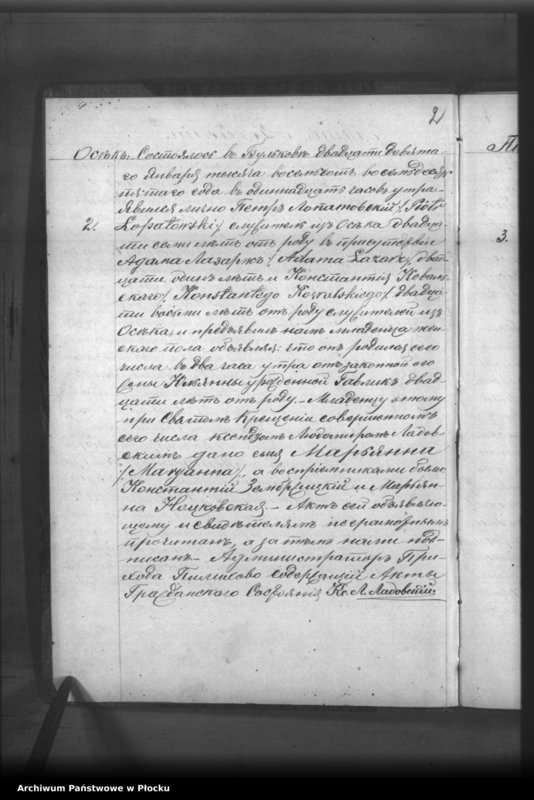 2
Осѣкъ. Состоялось въ двадцати девята-
го Января тысяча восемьсотъ восемьдесятъ
пятаго года въ одиннадцать часовъ утра
явился лично Петръ Лопатовскій / Piotr
2. Łopatowski / служитель изъ Осѣка двадца-
ти семи лѣтъ отъ роду въ присутствіи
Адама Лазаржъ / Adama Łazarz / двад-
цати одинъ лѣтъ и Константія Коваль-
скаго / Konstantego Kowalskiego / двадца-
ти восьми лѣтъ отъ роду служителей изъ
Осѣка и предъявилъ намъ младенца жен-
скаго пола объявляя: что онъ родился сего
числа въ два часа утра отъ законной его
жены урожденной Гаврикъ двад-
цати лѣтъ отъ роду. Младенцу этому
при Святомъ Крещеніи совершенномъ
сего числа ксендзомъ Ладов-
скимъ дано имя Марьянна
/ Maryanna /, а воспріемниками были
Константій и Марьян-
на Ноцковская. Актъ сей объявляю-
щему и свидѣтелямъ неграмотнымъ
прочитанъ, а за тѣмъ нами подъ-
писанъ. Администраторъ При-
хода содержащій Акты
Гражданскаго Состоянія Кс. Л. Ладовскій
3.
Archiwum Państwowe w Płocku